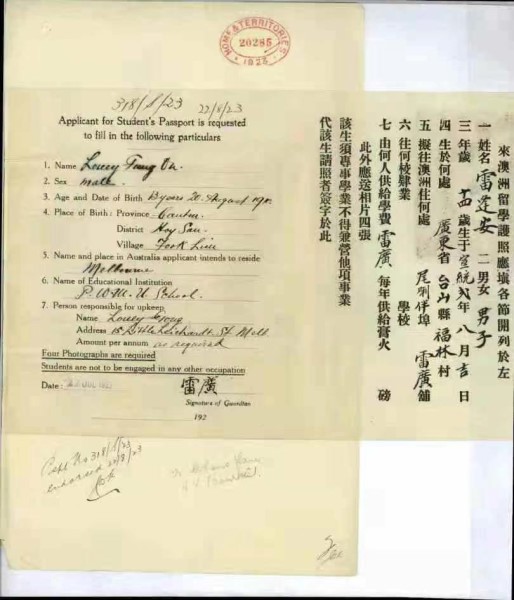 HOME & TERRITORIES
20285
1923
318/S/23 22/8/23
Applicant for Student's Passport is requested
to fill in the following particulars
1. Name Louey Tong On
2. Sex Male
3. Age and Date of Birth 13 years 20 August 190
4. Place of Birth: Province Canton
District Hoy San
Village Fook Lim
5. Name and place in Australia applicant intends to reside
Melbourne
6. Name of Educational Institution
P. W. M. U School.
7. Person responsible for upkeep
Name Louey Gong
Address 15 Little Leichardt St Melb
Amount per annum as required
Four Photographs are required
Students are not to be engaged in any other occupation
Date:
雷廣
Signature of Guardian
192
318/S/23
endorsed 22/8/23
來澳洲留學護照應填各節開列於左
一姓名 雷 安 二男女 男子
三年歲 十四歲生于宣統弍年八月吉日
四生於何處 廣東省台山縣福林村
五擬往澳洲住何處 尾利伴埠 雷廣舖
六往何校肄業 學校
七由何人供給學費 雷廣 每年供給膏火 磅
此外應送相片四張
該生須專事學業不得兼營他項事業
代該生請照者簽字於此